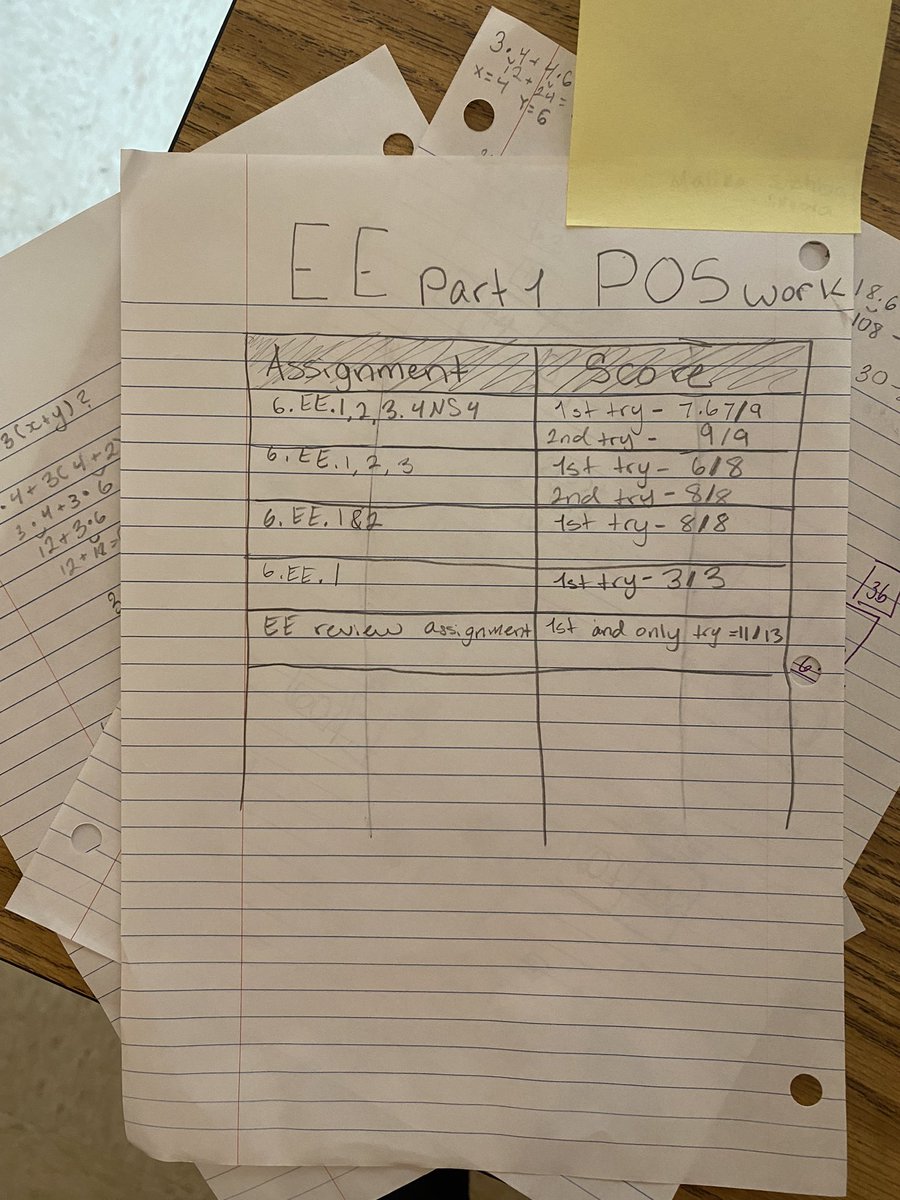 3.4+4.6
12+24=
x=4
y=6
EE Part 1 POS work
Assignment Score
6.EE.1,2,3.4NS4 1st try - 7.67/9
2nd try - 9/9
6.EE.1,2,3 1st try - 6/8
2nd try - 8/8
6.EE.1&2 1st try - 8/8
6.EE.1 1st try - 3/3
EE review assignment 1st and only try = 11/13
3(x+y)?
.4+3(4+2
3.4+3.6
12+3.6
12+
18.6
108 -
30 -
36
6.